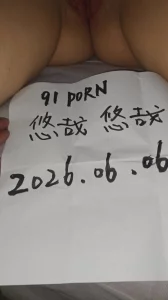 91 PORN
悠哉 悠哉
2026.06.06